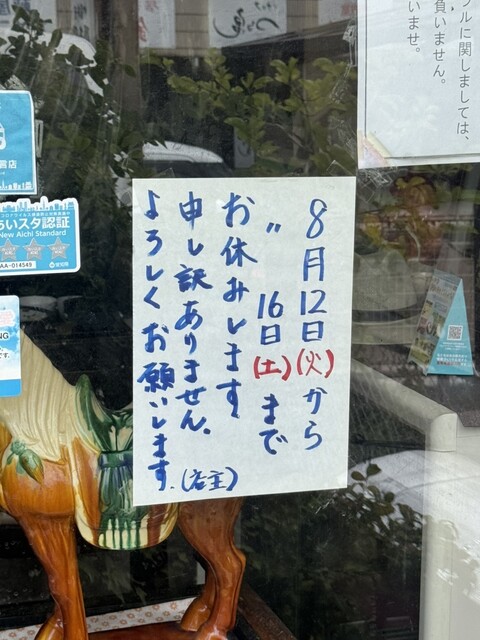 8月12日(火)から
〃 16日(土)まで
お休みします
申し訳ありません。
よろしくお願いします。
(店主)
ブルに関しましては、
負いません。
いませ。
あいスタ認証
New Aichi Standard
AA-014549